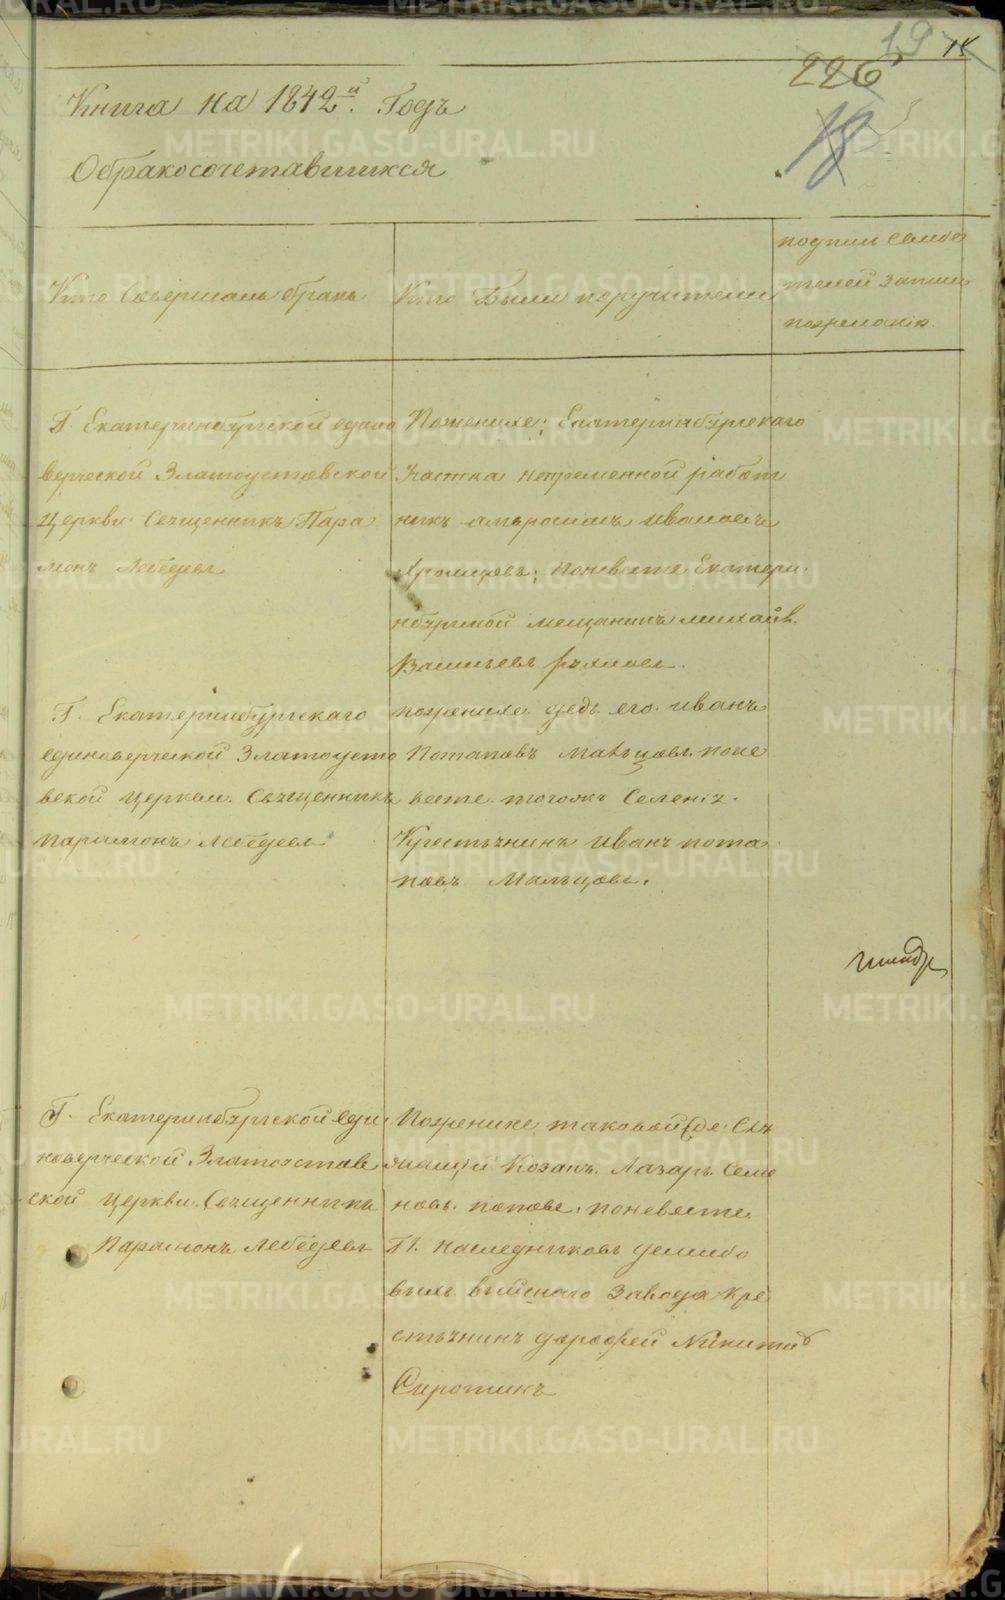 19 18
226
Книга на 1842й. Годъ
Обракосочетавшихся
Кто Совершалъ бракъ
Кто Были поручители
подписи Свиде
телей записи
пожеланію
Г. Екатеринбургской едино
верческой Златоустовской
Церкви Свещенникъ Пара
монъ Лебедевъ
Поженихе; Екатеринбургскаго
непременной работ
никъ Ивановъ
поневесте Екатери
нбургской мещанинъ михайл
Васильевъ
Г. Екатеринбургскаго
единоверческой Златоусто
вской церкви. Свещенникъ
Парамонъ Лебедевъ
поженихе. дедъ его. иванъ
Потаповъ Мальцовъ. поне
весте. тогожъ Селенія.
Крестьянинъ иванъ пота
повъ Мальцовъ.
Г. Екатеринбургской еди
новерческой Златоустов
ской церкви. Свещенникъ
Парамонъ Лебедевъ
Поженихе, таковой
Козакъ. Лазарь Семе
новъ. поповъ. поневесте
Г. наследниковъ демидо
выхъ выйскаго Завода Кре
стьянинъ дорофей Никитив
Сиротинъ
METRIKI.GASO-URAL.RU